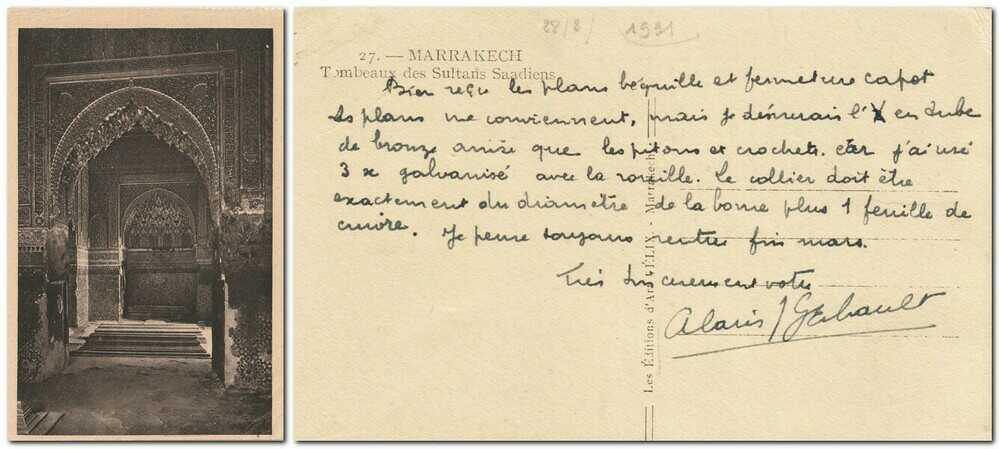 28/2/ 1931
27. — MARRAKECH
Tombeaux des Sultans Saadiens
Bien reçu les plans béquille et fermeture capot
Les plans me conviennent, mais je désirerais l'X en tube
de bronze ainsi que les pitons et crochets. car j'ai usé
3 x galvanisé avec la rouille. Le collier doit être
exactement du diamètre de la bome plus 1 feuille de
cuivre. Je pense toujours rentrer fin mars.
Très sincerement votre
Alain J Gerbault
Les Éditions d'Art FÉLIX - Marrakech